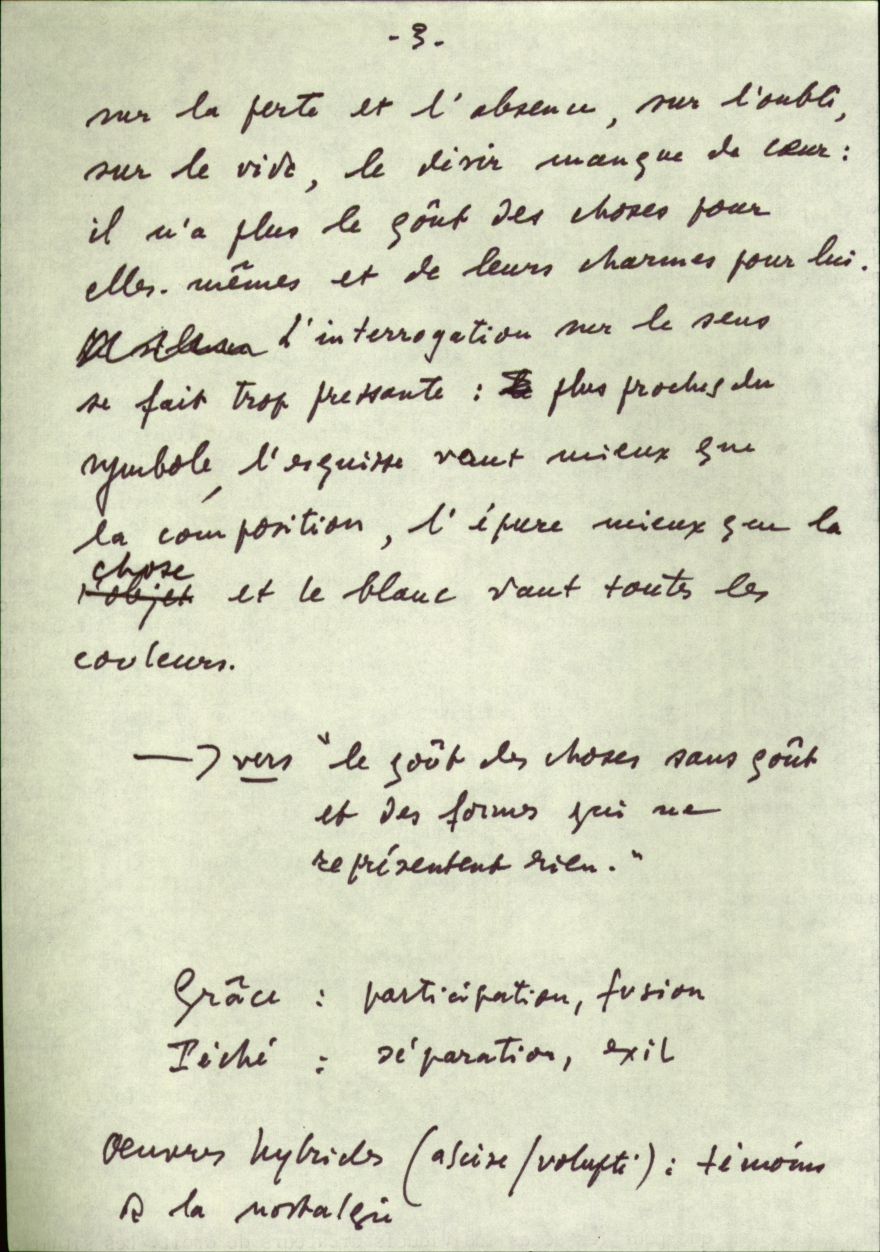 - 3 -
sur la perte et l'absence, sur l'oubli,
sur le vide, le désir manque de cœur :
il n'a plus le goût des choses pour
elles-mêmes et de leurs charmes pour lui.
L'interrogation sur le sens
se fait trop pressante : plus proches du
symbole, l'esquisse vaut mieux que
la composition, l'épure mieux que la
chose
l'objet et le blanc vaut toutes les
couleurs.
→ vers "le goût des choses sans goût
et des formes qui ne
représentent rien."
Grâce : participation, fusion
Péché : séparation, exil
Oeuvres hybrides (ascèse/volupté) : témoins
de la nostalgie